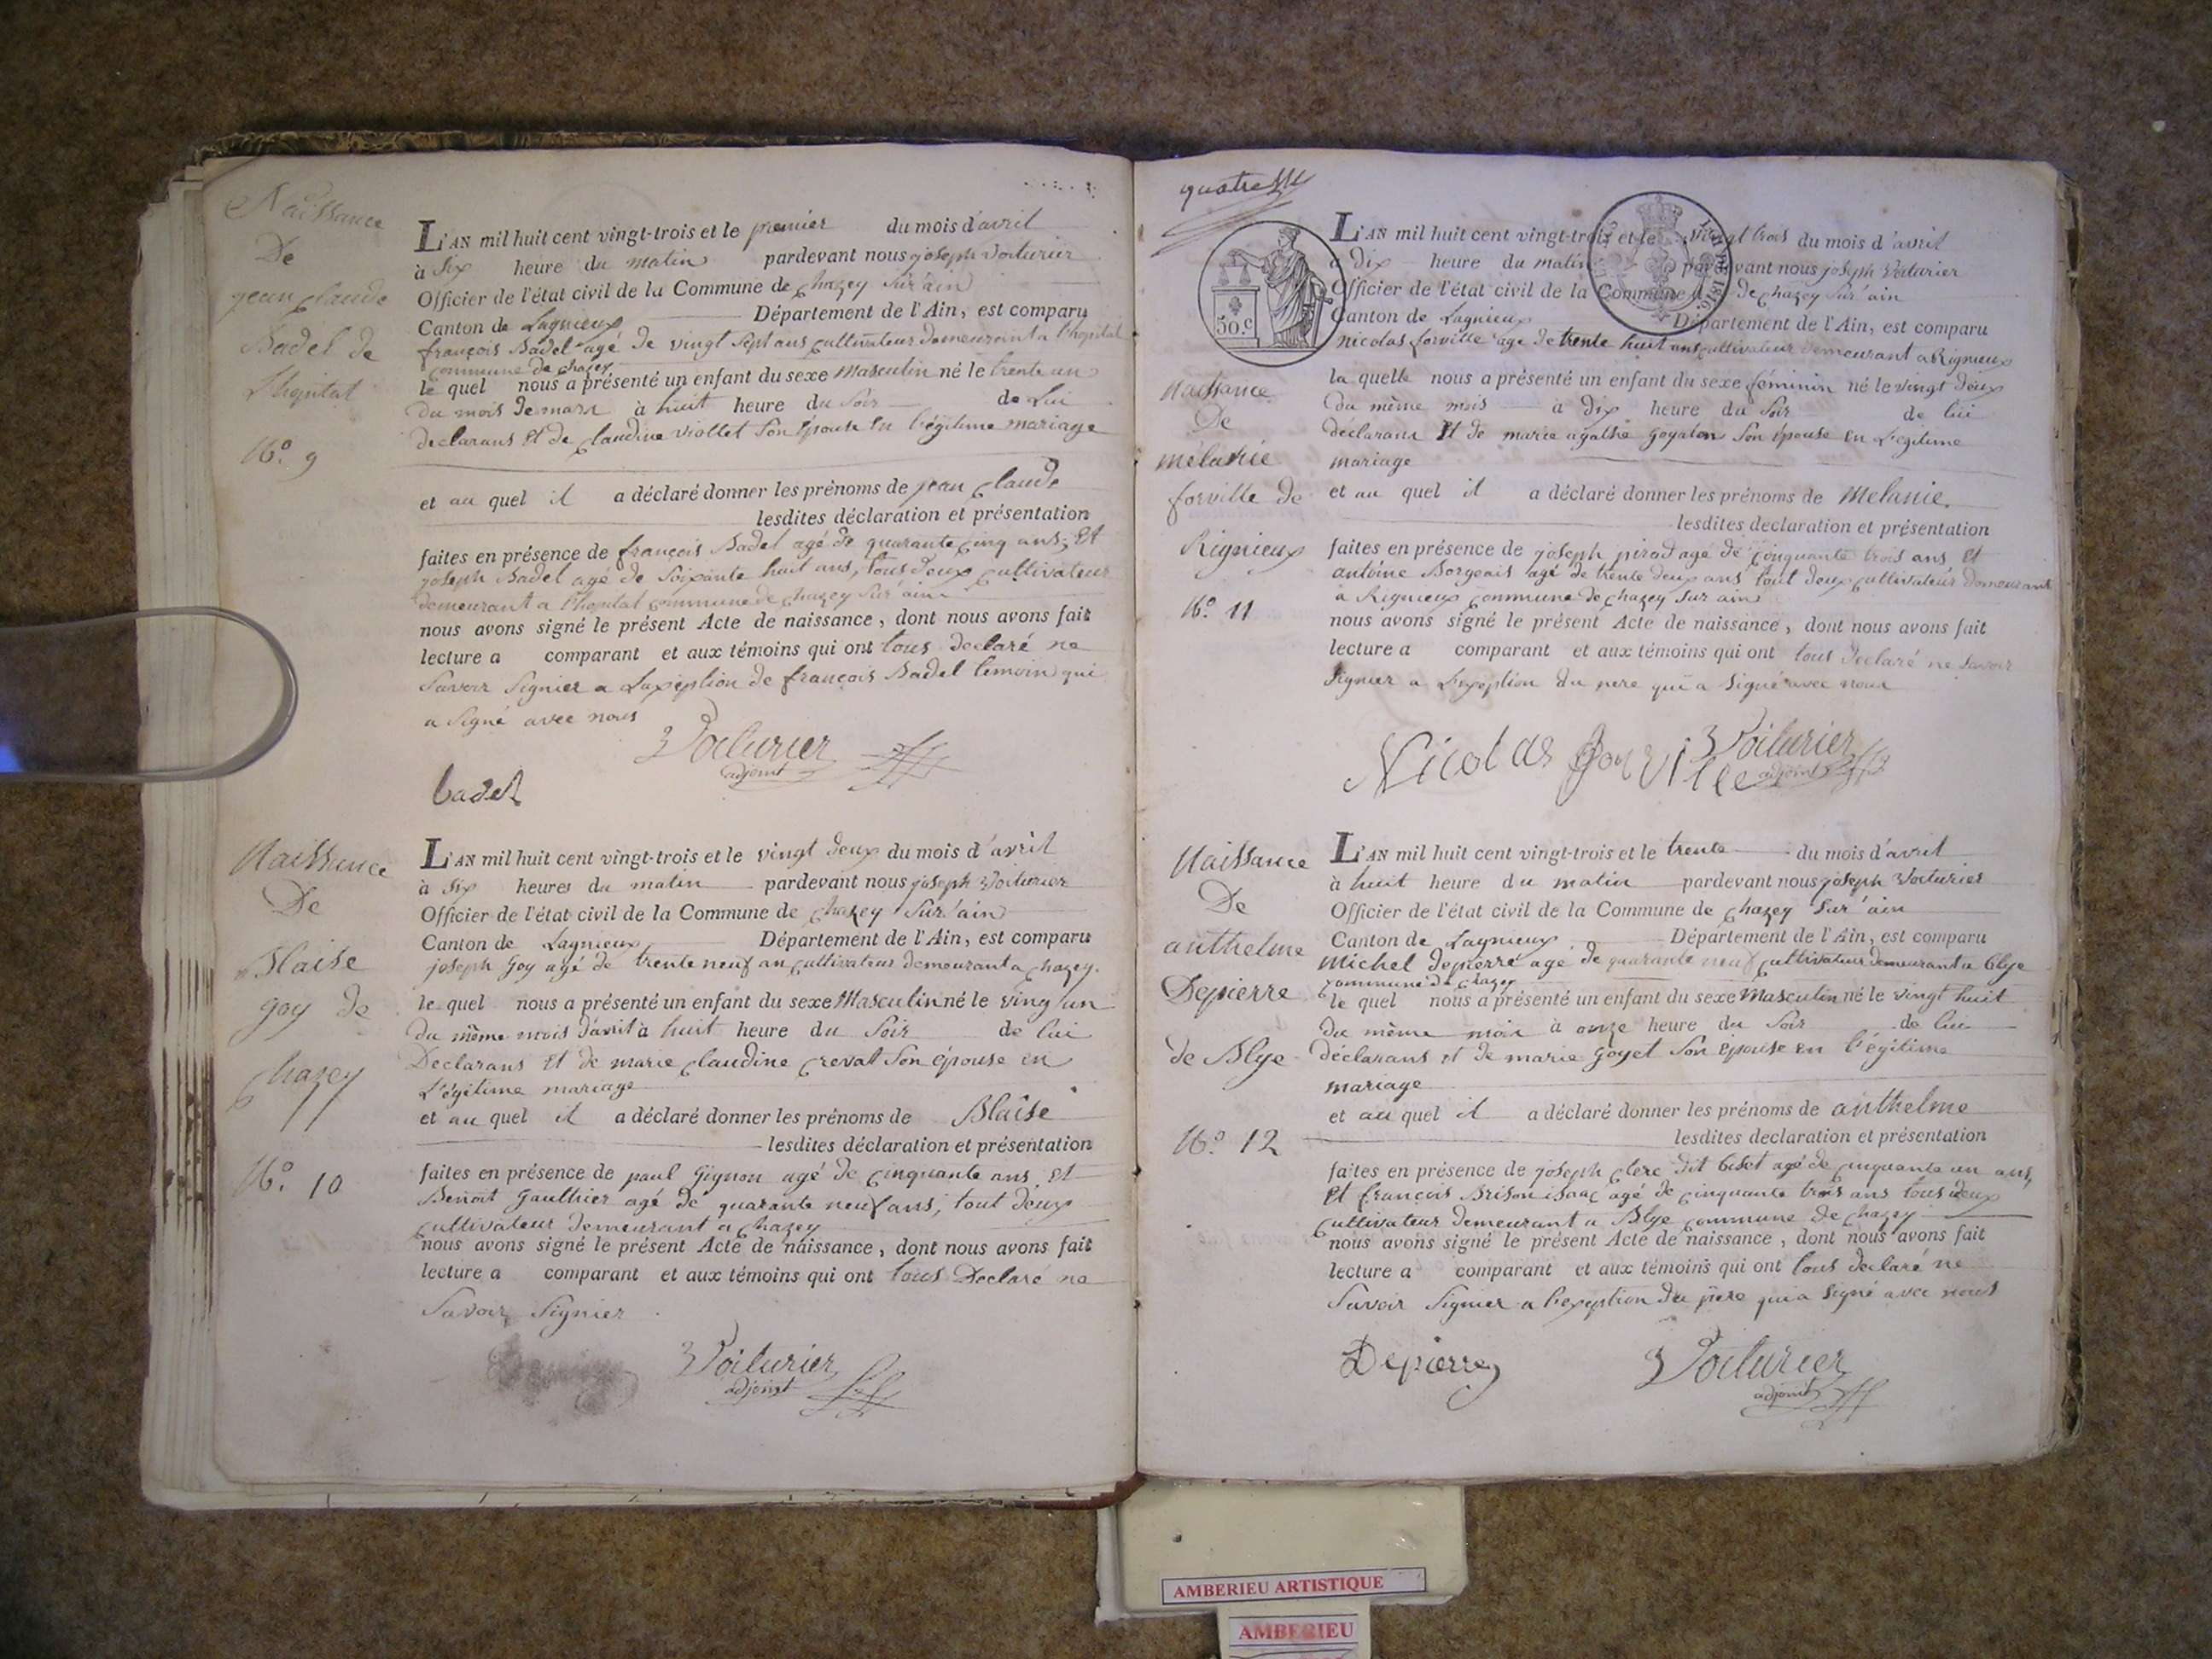 Naissance
De
jean Claude
Badel de
l'hopital
No. 9
L'AN mil huit cent vingt-trois et le premier du mois d'avril
à six heure du matin pardevant nous joseph Voiturier
Officier de l'état civil de la Commune de Chazey sur ain
Canton de Lagnieux Département de l'Ain, est comparu
françois Badel agé de vingt sept ans cultivateur demeurant a l'hopital
commune de chazey
le quel nous a présenté un enfant du sexe Masculin né le trente un
du mois de mars à huit heure du soir de Lui
declarans et de claudine viollet son épouse en légitime mariage
et au quel il a déclaré donner les prénoms de jean Claude
lesdites déclaration et présentation
faites en présence de françois Badel agé de quarante cinq ans, Et
joseph Badel agé de soixante huit ans, tous deux cultivateur
demeurant a l'hopital commune de Chazey sur ain
nous avons signé le présent Acte de naissance, dont nous avons fait
lecture a comparant et aux témoins qui ont tous declaré ne
savoir signier a Laxception de françois Badel temoin qui
a signé avec nous
Voiturier
adjoint
badel
Naissance
De
Blaise
goy de
Chazey
No. 10
L'AN mil huit cent vingt-trois et le vingt deux du mois d'avril
à six heures du matin pardevant nous joseph Voiturier
Officier de l'état civil de la Commune de Chazey sur ain
Canton de Lagnieux Département de l'Ain, est comparu
joseph Goy agé de trente neuf an cultivateur demeurant a Chazey.
le quel nous a présenté un enfant du sexe Masculin né le ving un
du même mois d'avril à huit heure du soir de lui
Declarans Et de marie claudine Creval son épouse en
Légitime mariage
et au quel il a déclaré donner les prénoms de Blaise
lesdites déclaration et présentation
faites en présence de paul Gignon agé de cinquante ans, et
Benoit Gaulthier agé de quarante neuf ans, tout deux
cultivateur demeurant a Chazey
nous avons signé le présent Acte de naissance, dont nous avons fait
lecture a comparant et aux témoins qui ont tous Declaré ne
savoir signier
Voiturier
adjoint
quatre
50.c
Naissance
De
melanie
forville de
Rignieux
No. 11
L'AN mil huit cent vingt-trois et le vingt trois du mois d'avril
à dix heure du matin pardevant nous joseph Voiturier
Officier de l'état civil de la Commune de chazey sur ain
Canton de Lagnieux Département de l'Ain, est comparu
nicolas forville agé de trente huit ans cultivateur demeurant a Rignieux
la quelle nous a présenté un enfant du sexe féminin né le vingt deux
du même mois à dix heure du soir de lui
déclarans Et de marie agathe goyaton son épouse en Légitime
mariage
et au quel il a déclaré donner les prénoms de Melanie.
lesdites declaration et présentation
faites en présence de joseph pirod agé de cinquante trois ans et
antoine Borgeais agé de trente deux ans tout deux cultivateur demeurant
a Rignieux commune de chazey sur ain
nous avons signé le présent Acte de naissance, dont nous avons fait
lecture a comparant et aux témoins qui ont tout declaré ne savoir
signier a Lexeption du pere qui a signé avec nous
Nicolas forville
Voiturier
adjoint
Naissance
De
anthelme
Depierre
de Blye
No. 12
L'AN mil huit cent vingt-trois et le trente du mois d'avril
à huit heure du matin pardevant nous joseph Voiturier
Officier de l'état civil de la Commune de Chazey sur ain
Canton de Lagnieux Département de l'Ain, est comparu
Michel depierre age de quarante neuf cultivateur demeurant a blye
commune de chazey
le quel nous a présenté un enfant du sexe Masculin né le vingt huit
du même mois à onze heure du soir de lui
déclarans et de marie goyet son épouse en légitime
mariage
et au quel il a déclaré donner les prénoms de anthelme
lesdites declaration et présentation
faites en présence de joseph clerc dit biset agé de cinquante un ans,
et françois Brison isaac agé de cinquante trois ans tous deux
cultivateur demeurant a Blye commune de chazey
nous avons signé le présent Acte de naissance, dont nous avons fait
lecture a comparant et aux témoins qui ont tous declaré ne
savoir signier a l'exeption du père qui a signé avec nous
Depierre
Voiturier
adjoint
AMBERIEU ARTISTIQUE
AMBERIEU